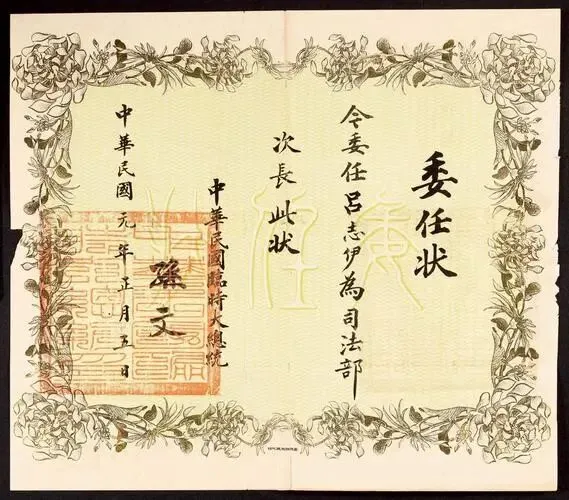 委任状
令委任呂志伊為司法部
次長此状
中華民國臨時大總統
孫文
中華民國元年正月五日